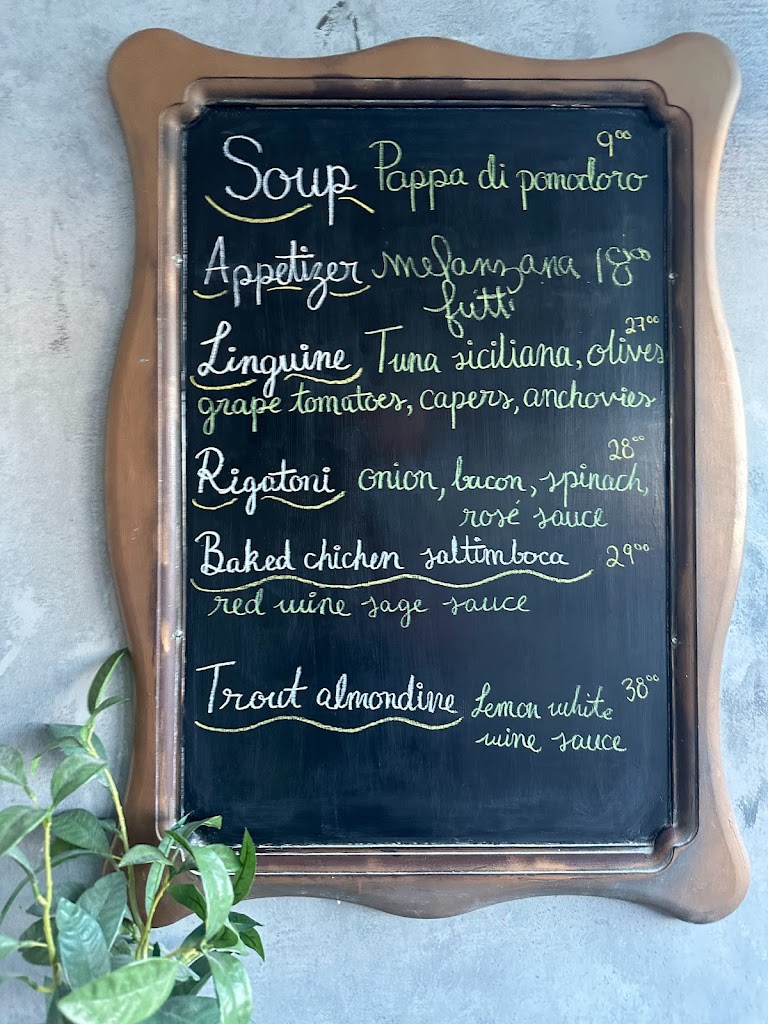 9 00
Soup Pappa di pomodoro
Appetizer melanzana 18 00
futti
27 00
Linguine Tuna siciliana, olives
grape tomatoes, capers, anchovies
28 00
Rigatoni onion, bacon, spinach,
rosé sauce
Baked chichen saltimboca 29 00
red wine sage sauce
Trout almondine Lemon white 38 00
wine sauce